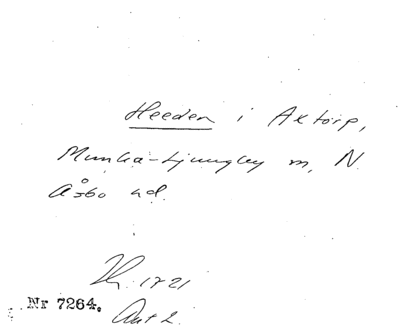 Heeden i Axtorp,
Munka-Ljungby sn, N.
Åsbo hd.
1721
Nr 7264. Akt 2.